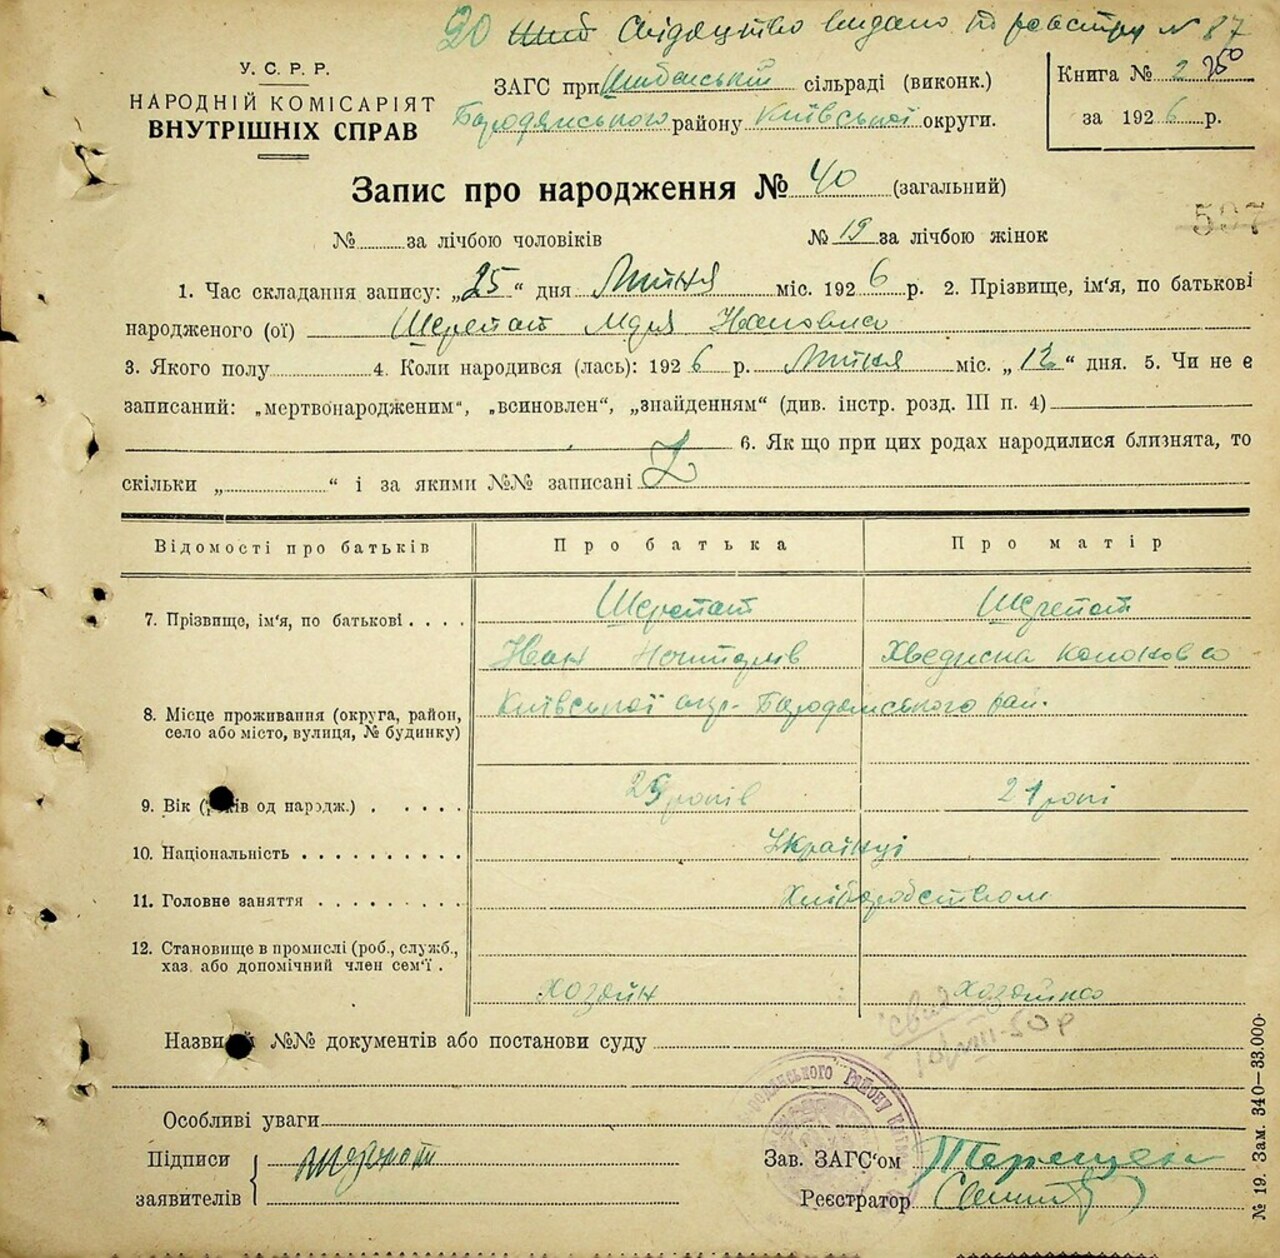 20 Свідоцтво видано по реєстру № 87
У. С. Р. Р.
НАРОДНІЙ КОМІСАРІЯТ
ВНУТРІШНІХ СПРАВ
ЗАГС при Шибенській сільраді (виконк.)
Бородянського району Київської округи.
Книга № 2
за 1926 р.
Запис про народження № 40 (загальний)
507
№ за лічбою чоловіків № 19 за лічбою жінок
1. Час складання запису: „25“ дня Липня міс. 1926 р. 2. Прізвище, ім'я, по батькові
народженого (ої) Шерепат Івановна
3. Якого полу 4. Коли народився (лась): 1926 р. Липня міс. „12“ дня. 5. Чи не є
записаний: „мертвонародженим“, „всиновлен“, „знайденням“ (див. інстр. розд. III п. 4)
6. Як що при цих родах народилися близнята, то
скільки „ “ і за якими №№ записані Z
Відомості про батьків Про батька Про матір
7. Прізвище, ім'я, по батькові . . . . Шерепат Шерепат
Іван Хведосна
8. Місце проживання (округа, район, село або місто, вулиця, № будинку) Київської окр. Бородянського рай.
9. Вік (років од народж.) . . . . . 29 років 21 рокі
10. Національність . . . . . . . . . . Українці
11. Головне заняття . . . . . . . . . Хліборобством
12. Становище в промислі (роб., служб., хаз. або допомічний член сем'ї . Хозяїн Хозяйка
Назвища №№ документів або постанови суду
Особливі уваги
Підписи
заявителів
Шерепат
Зав. ЗАГС'ом Терещен
Реєстратор
№ 19. Зам. 340—33.000